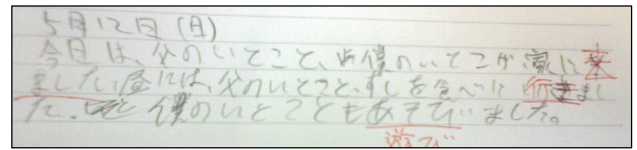 5月12日(日)
今日は、父のいとこと、僕のいとこが家に来
ました。昼には、父のいとこと、すしを食べに行きまし
た。僕のいとこともあそびました。
遊び